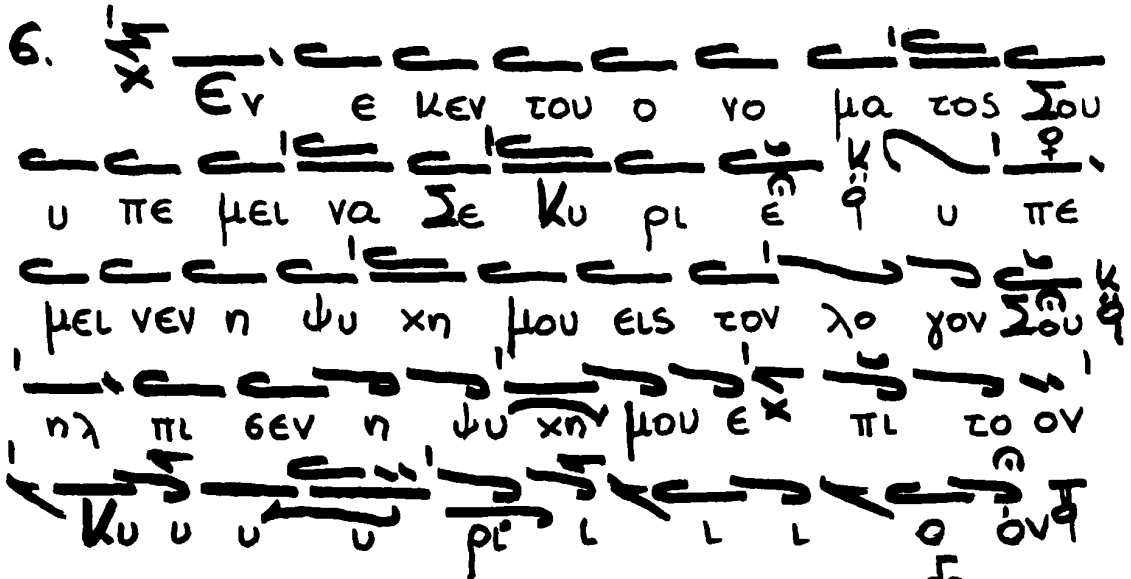 6. Εν ε κεν του ο νο μα τος Σου
υ πε μει να Σε Κυ ρι ε υ πε
μει νεν η ψυ χη μου εις τον λο γον Σου
ηλ πι σεν η ψυ χη μου ε πι το ον
Κυ υ υ υ ρι ι ι ι ο ον